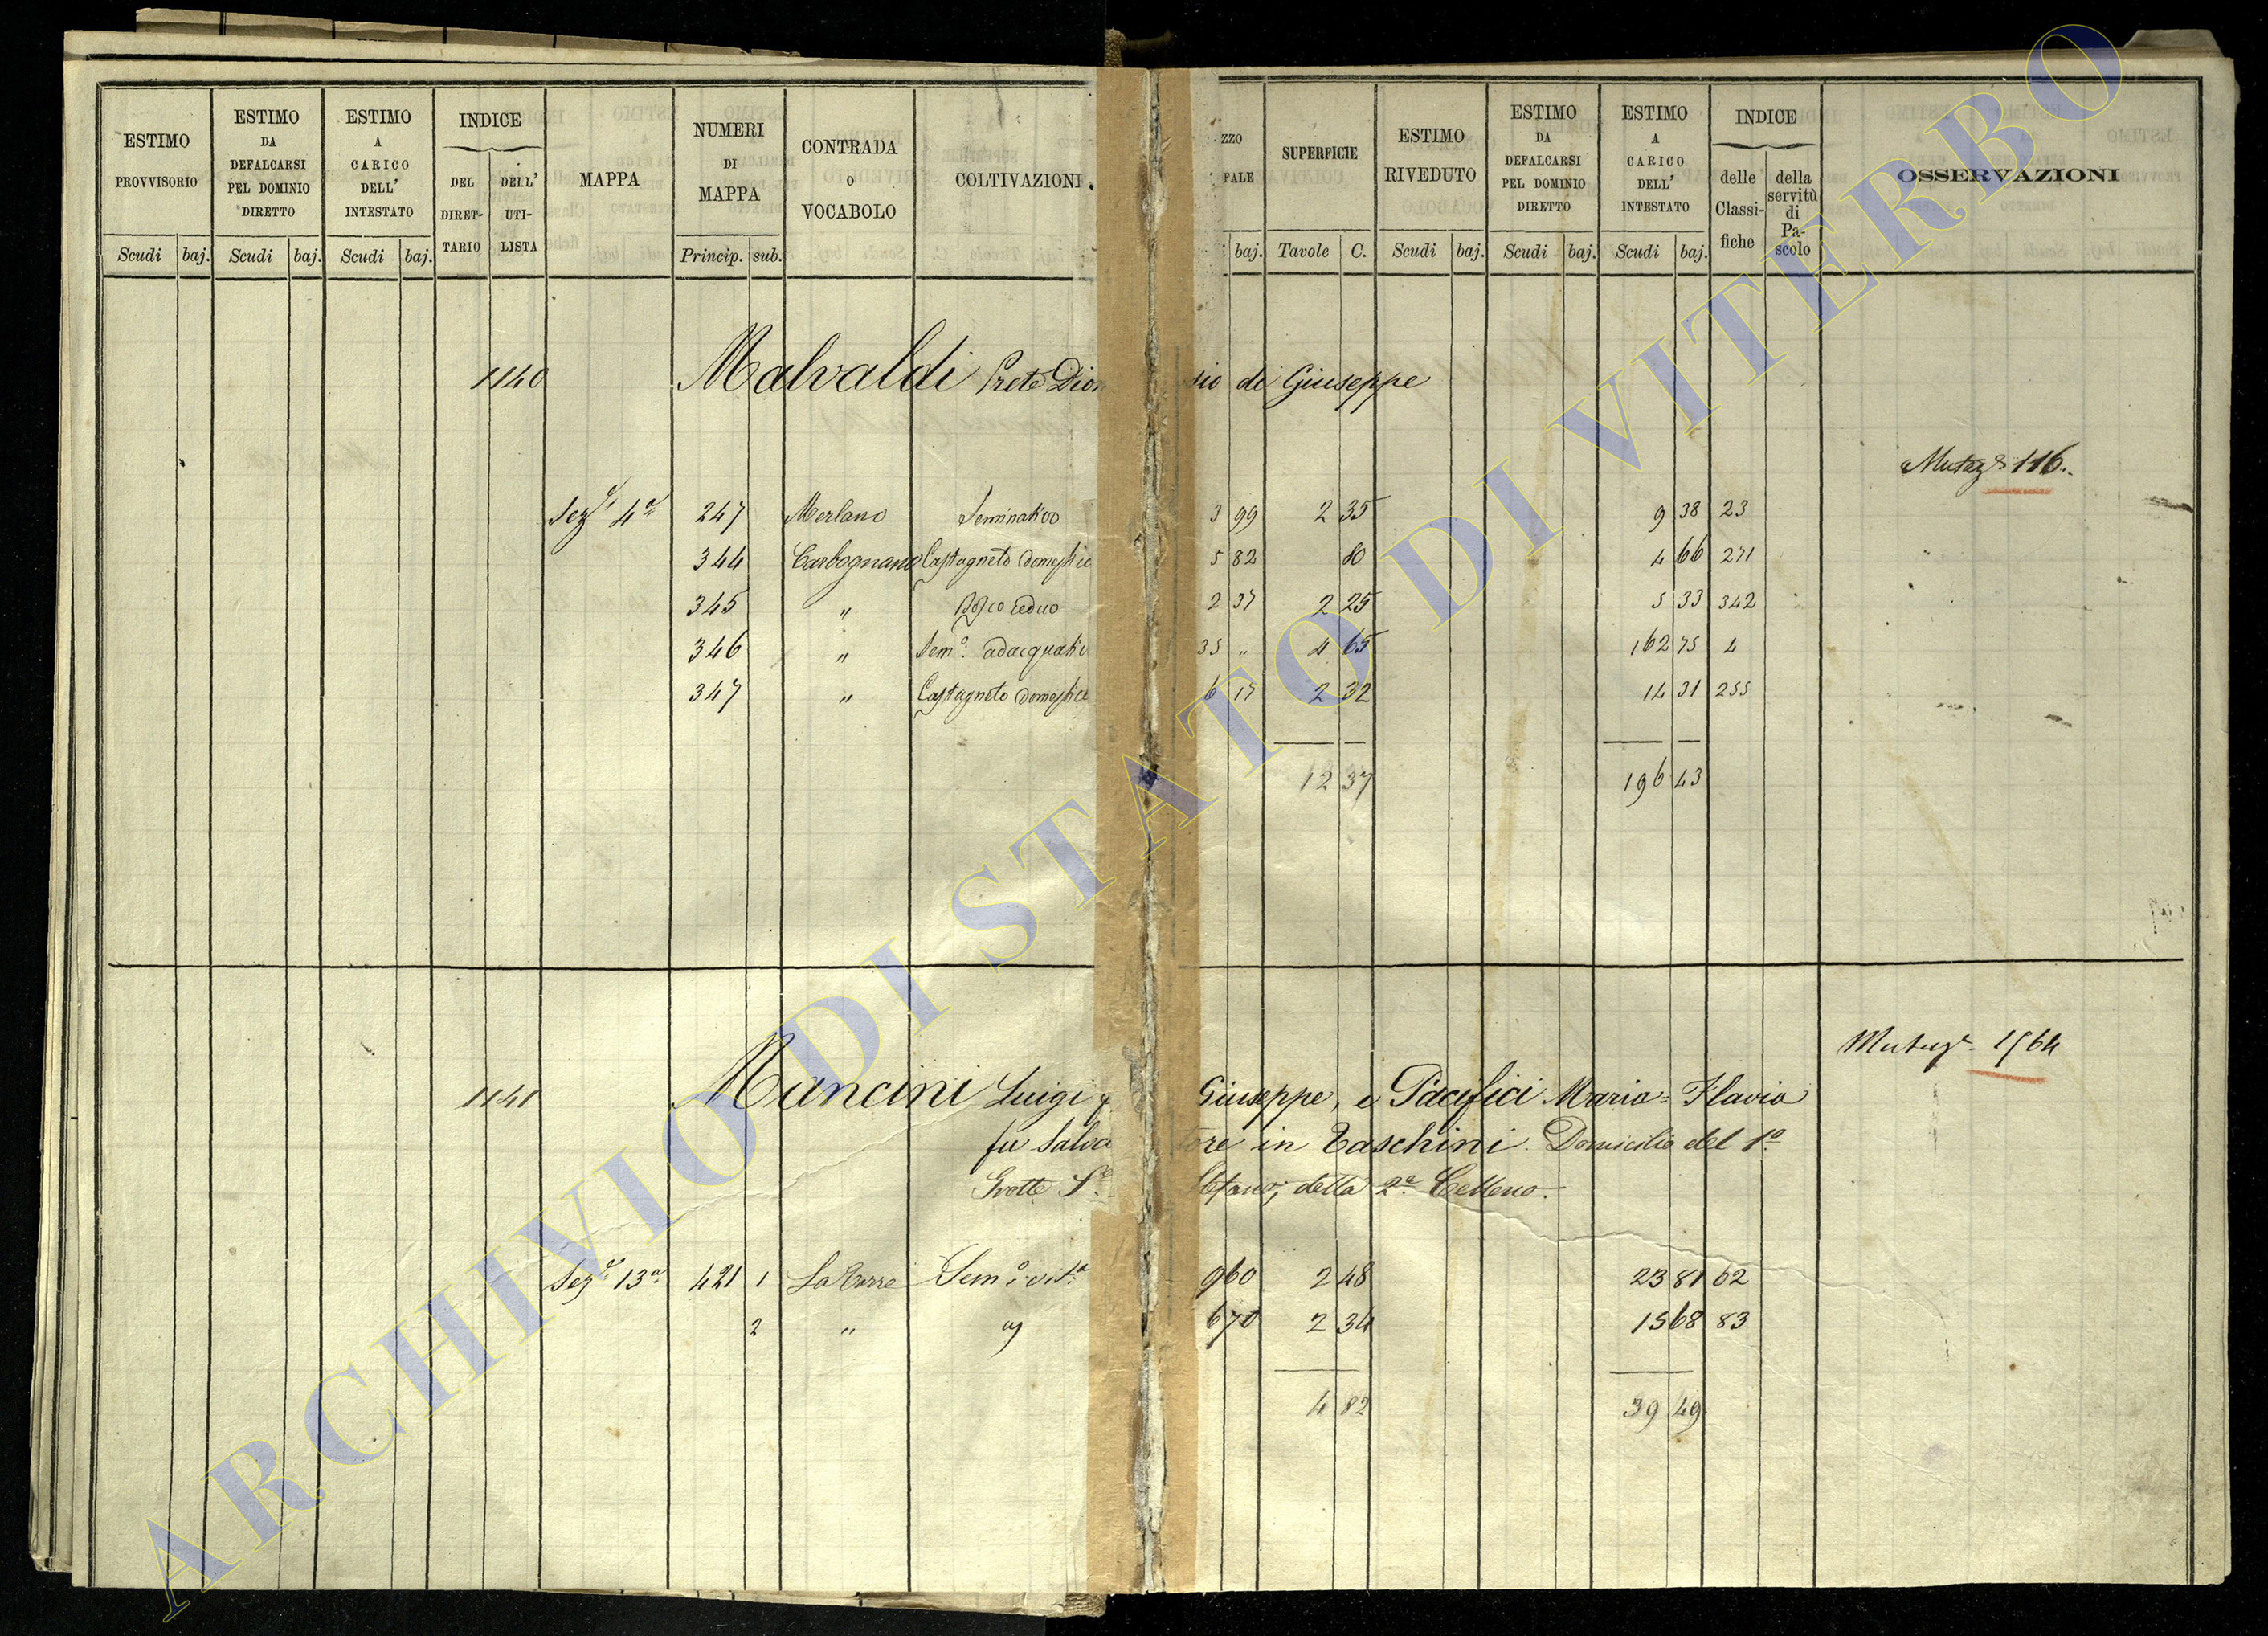 ESTIMO PROVVISORIO Scudi baj.
ESTIMO DA DEFALCARSI PEL DOMINIO DIRETTO Scudi baj.
ESTIMO A CARICO DELL' INTESTATO Scudi baj.
INDICE DEL DIRET- TARIO DELL' UTI- LISTA
MAPPA
NUMERI DI MAPPA Princip. sub.
CONTRADA O VOCABOLO
COLTIVAZIONI
ZZO FALE baj.
SUPERFICIE Tavole C.
ESTIMO RIVEDUTO Scudi baj.
ESTIMO DA DEFALCARSI PEL DOMINIO DIRETTO Scudi baj.
ESTIMO A CARICO DELL' INTESTATO Scudi baj.
INDICE delle Classi- fiche della servitù di Pa- scolo
OSSERVAZIONI
1140 Malvaldi Prete Dion sio di Giuseppe
116.
Sez. 4a 247 Merlano Seminativo 3 99 2 35 9 38 23
344 Carbognano Castagneto domestico 5 82 80 4 66 271
345 " Bosco ceduo 2 37 2 25 5 33 342
346 " Sem.o adacquativ 35 " 4 65 162 75 4
347 " Castagneto domestico 6 17 2 32 14 31 255
12 37 196 43
Mutaz. 1564
1141 Mancini Luigi q Giuseppe, e Pacifici Maria=Flavia
fu Salva tore in Taschini. Domicilio del 1o
Grotte S. Stefano, della 2a Celleno.
Sez. 13a 421 1 La Torre Sem.o vit.o 9 60 2 48 23 81 62
2 " " 6 70 2 34 15 68 83
4 82 39 49
ARCHIVIO DI STATO DI VITERBO